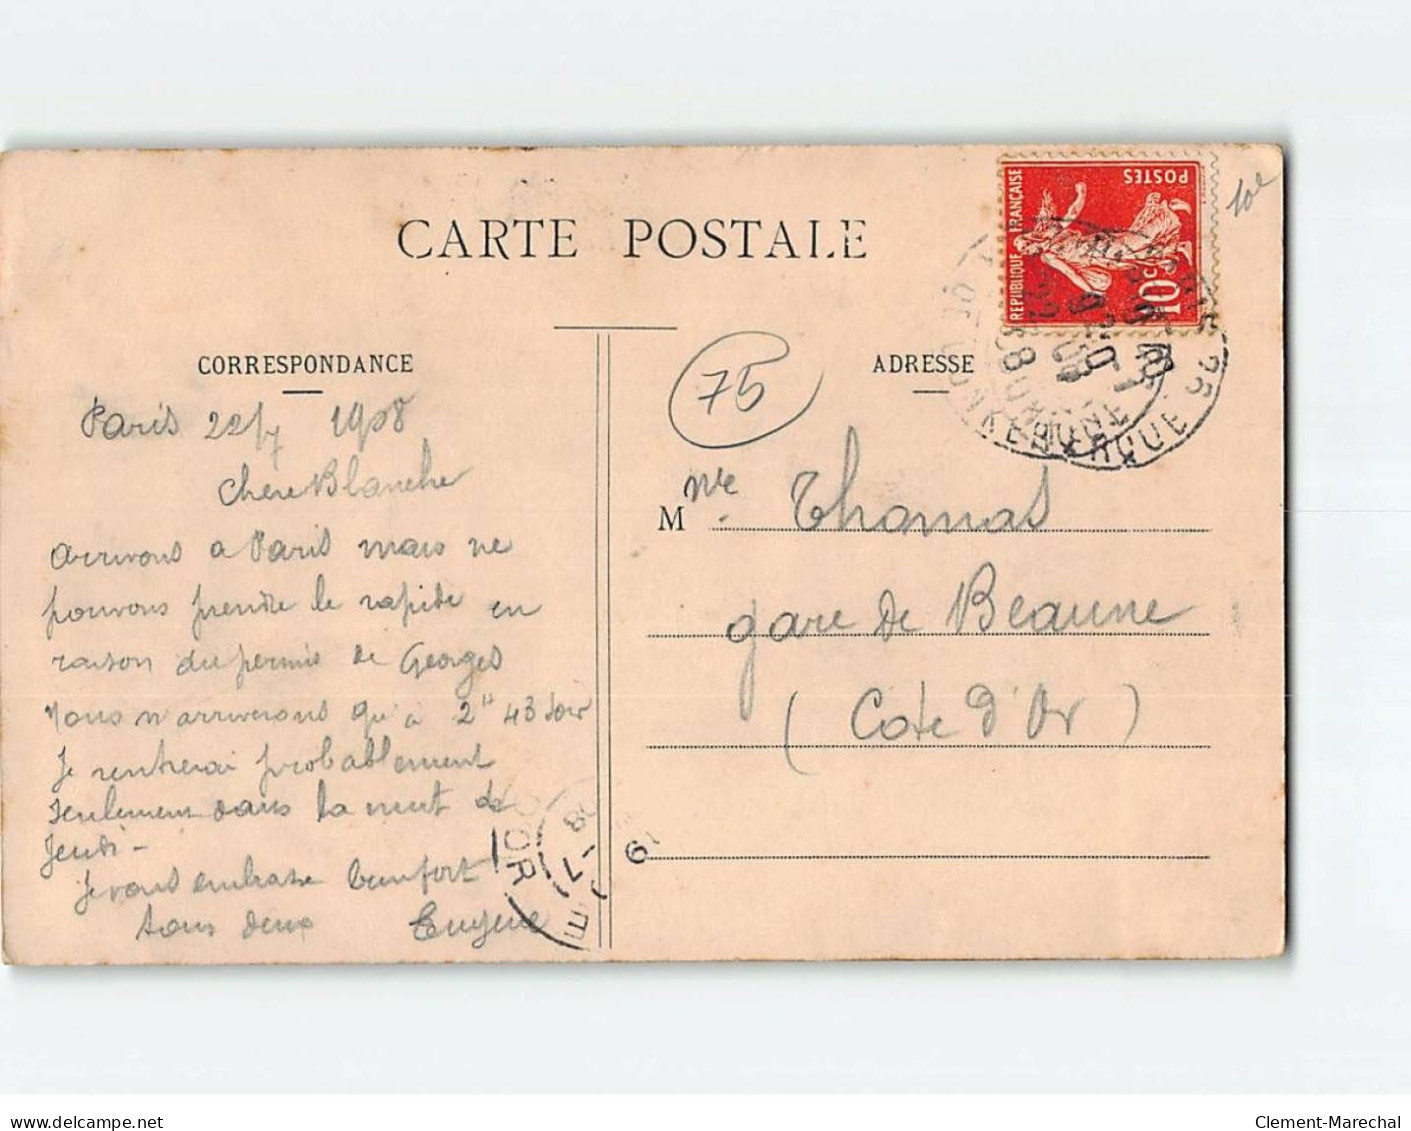 CARTE POSTALE
CORRESPONDANCE
ADRESSE
REPUBLIQUE FRANÇAISE
POSTES
10c
75
Paris 22/7 1908
Chere Blanche
arrivons a Paris mais ne
pouvons prendre le rapide en
raison du permis de Georges
Nous n'arriverons qu'à 2h 43 soir
Je rentrerai probablement
seulement dans la nuit de
Jeudi -
Je vous embrasse bien fort
tous deux Eugene
M me Thomas
gare de Beaune
(Cote d'Or)
PARIS 25
DUNKERQUE
D'OR
delcampe.net
Clement-Marechal